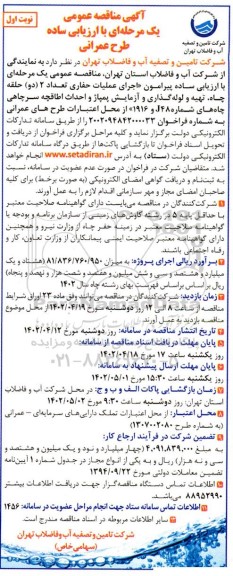 نوبت اول
آگهی مناقصه عمومی
یک مرحله‌ای با ارزیابی ساده
طرح عمرانی
شرکت تامین و تصفیه
آب و فاضلاب تهران
شرکت تامین و تصفیه آب و فاضلاب تهران در نظر دارد به نمایندگی
از شرکت آب و فاضلاب استان تهران، مناقصه عمومی یک مرحله‌ای
با ارزیابی ساده پیرامون «اجرای عملیات حفاری تعداد ۲ (دو) حلقه
چاه، تهیه و لوله‌گذاری و آزمایش پمپاژ و احداث اطاقچه سرچاهی
چاه‌های شماره ۴۸آ و ۱۹۱۶» از محل اعتبارات طرح های عمرانی
به شماره فراخوان ۲۰۰۲۰۹۴۸۴۲۰۰۰۰۳۳ را از طریق سامانه تدارکات
الکترونیکی دولت برگزار نماید و کلیه مراحل برگزاری فراخوان از دریافت و
تحویل اسناد فراخوان تا بازگشایی پاکت‌ها از طریق درگاه سامانه تدارکات
الکترونیکی دولت (ستاد) به آدرس www.setadiran.ir انجام خواهد
شد. متقاضیان شرکت در فراخوان در صورت عدم عضویت در سامانه، نسبت
به ثبت‌نام و دریافت گواهی امضای الکترونیکی (به صورت برخط) برای کلیه
صاحبان امضای مجاز و مهر سازمانی اقدام لازم را به عمل آورند.
شرکت‌کنندگان در مناقصه می‌بایست دارای گواهینامه صلاحیت معتبر
با حداقل پایه ۵ در رشته کاوش‌های زمینی از سازمان برنامه و بودجه یا
گواهینامه صلاحیت معتبر در زمینه حفر چاه از وزارت نیرو و همچنین
دارای گواهینامه معتبر صلاحیت ایمنی پیمانکاران از وزارت تعاون، کار و
رفاه اجتماعی باشند.
برآورد ریالی اجرای پروژه: به میزان ۸۱/۸۳۶/۷۶۰/۹۵۰ (هشتاد و یک
میلیارد و هشتصد و سی و شش میلیون و هفتصد و شصت هزار و نهصد و پنجاه)
ریال بر اساس فهرست بهای رشته چاه سال ۱۴۰۲
زمان بازدید: شرکت‌کنندگان در مناقصه می‌توانند وفق ماده ۲۳ اوراق شرایط
مناقصه از ساعت ۸ الی ۱۲ روز دوشنبه مورخ ۱۴۰۲/۰۴/۱۹ از محل موضوع
مناقصه بازدید به عمل آورند.
تاریخ انتشار مناقصه در سامانه: روز دوشنبه مورخ ۱۴۰۲/۰۴/۱۲
پایان مهلت دریافت اسناد مناقصه از سامانه:
روز یکشنبه ساعت ۱۷ مورخ ۱۴۰۲/۰۴/۱۸
پایان مهلت ارسال پیشنهاد به سامانه:
روز یکشنبه ساعت ۱۵:۳۰ مورخ ۱۴۰۲/۰۵/۰۱
زمان بازگشایی پاکات الف و ب و ج: در محل شرکت آب و فاضلاب
استان تهران: روز دوشنبه ساعت ۹:۳۰ مورخ ۱۴۰۲/۰۵/۰۲
محل اعتبار: از محل اعتبارات تملک دارای‌های سرمایه‌ای – عمرانی
(به شماره طرح ۱۳۰۷۰۰۲۰۸۰)
تضمین شرکت در فرآیند ارجاع کار:
مبلغ ۴.۰۹۱.۸۳۹.۰۰۰ (چهار میلیارد و نود و یک میلیون و هشتصد و
سی و نه هزار) ریال و به یکی از انواع مجاز در جدول شماره ۱ آیین‌نامه
تضمین معاملات دولتی مورخ ۱۳۹۴/۰۹/۲۲
اطلاعات تماس دستگاه مناقصه‌گزار جهت دریافت اطلاعات بیشتر
۸۸۹۵۳۹۹۰ می‌باشد.
اطلاعات تماس سامانه ستاد جهت انجام مراحل عضویت در سامانه: ۱۴۵۶
سایر اطلاعات مربوطه در اسناد مناقصه مندرج است.
شرکت تامین و تصفیه آب و فاضلاب تهران
(سهامی خاص)